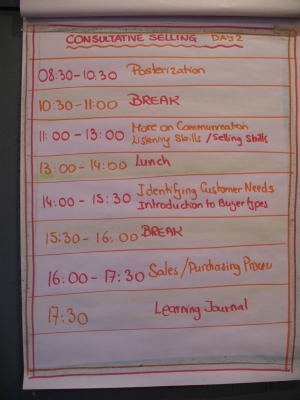 CONSULTATIVE SELLING DAY 2
08:30-10.30 Posterization
10:30-11:00 BREAK
11:00-13:00 More on Communication
Listening Skills / Selling Skills
13:00-14:00 Lunch
14:00-15:30 Identifying Customer Needs
Introduction to Buyer types
15:30-16:00 BREAK
16:00-17:30 Sales / Purchasing Process
17:30 Learning Journal